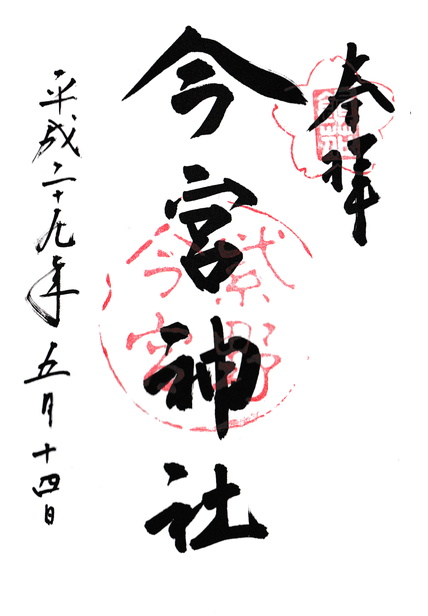 奉拝
今宮神社
紫野
今宮
平成二十九年五月十四日